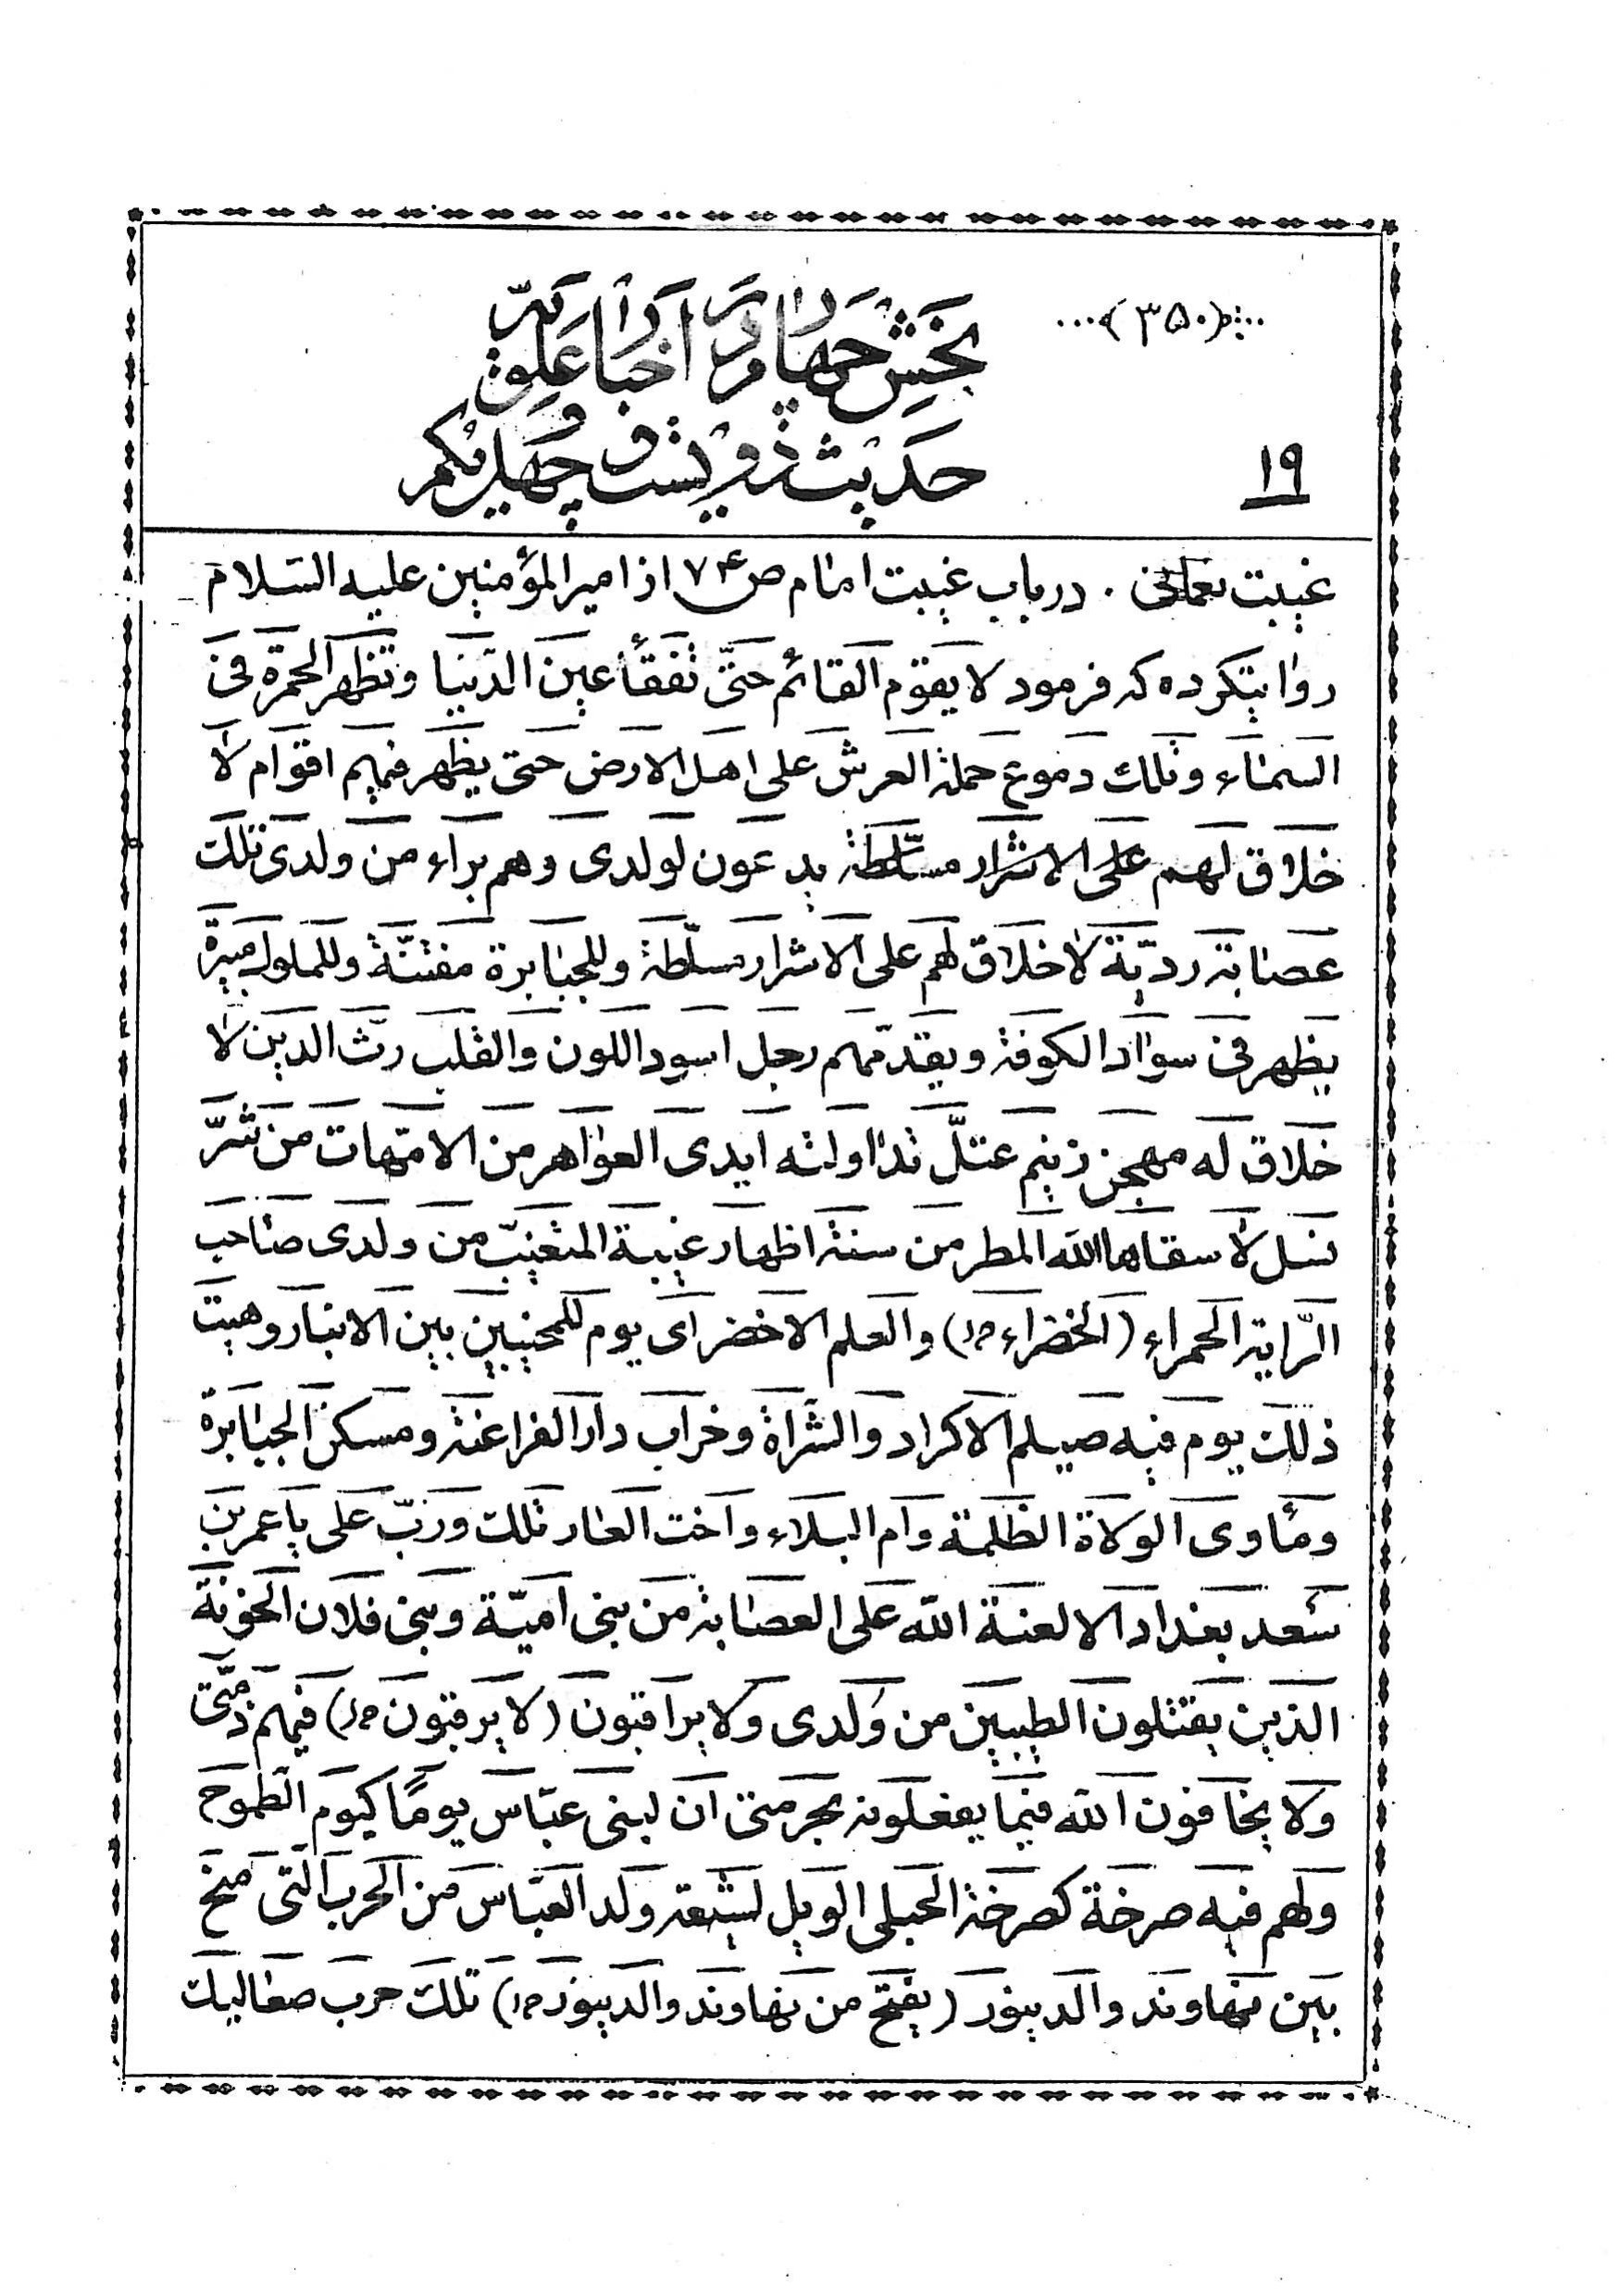 (۳۵۰)
بخش چهارم در اخبار علویّه
حدیث دویست و چهل و یکم
۱۹
غیبت نعمانی . در باب غیبت امام ص ۷۴ از امیر المؤمنین علیه السّلام
روایتکرده که فرمود لا یقوم القائم حتّی تفقأ عین الدّنیا و تظهر الحمرة فی
السماء و تلك دموع حملة العرش علی اهل الارض حتی یظهر فیهم اقوام لا
خلاق لهم علی الاشرار مسلّطة یدعون لولدی و هم براء من ولدی تلك
عصابة ردیّة لا خلاق لهم علی الاشرار مسلّطة و للجبابرة مفتنّة و للملوك مبیرة
یظهر فی سواد الکوفة و یقدّمهم رجل اسود اللون والقلب رثّ الدین لا
خلاق له مهجن زنیم عتلّ تداولته ایدی العواهر من الامّهات من شرّ
نسل لا سقاها الله المطر من سنة اظهار غیبة المتغیّب من ولدی صاحب
الرّایة الحمراء (الخضراء خ ل) والعلم الاخضر ای یوم للمخیبین بین الانبار و هیت
ذلك یوم فیه صیلم الاکراد والشراة و خراب دار الفراعنة و مسکن الجبابرة
و مأوی الولاة الظلمة و ام البلاء و اخت العار تلك و ربّ علی یا عمر بن
سعد بغداد الا لعنة الله علی العصابة من بنی امیّة و بنی فلان الخونة
الذین یقتلون الطیبین من ولدی و لا یراقبون (لا یرقبون خ ل) فیهم ذمّتی
و لا یخافون الله فیما یفعلونه بحرمتی ان لبنی عبّاس یوماً کیوم الطموح
و لهم فیه صرخة کصرخة الحبلی الویل لشیعة ولد العبّاس من الحرب التی منح
بین نهاوند والدینور (یفتح من نهاوند والدینور خ ل) تلك حرب صعالیك